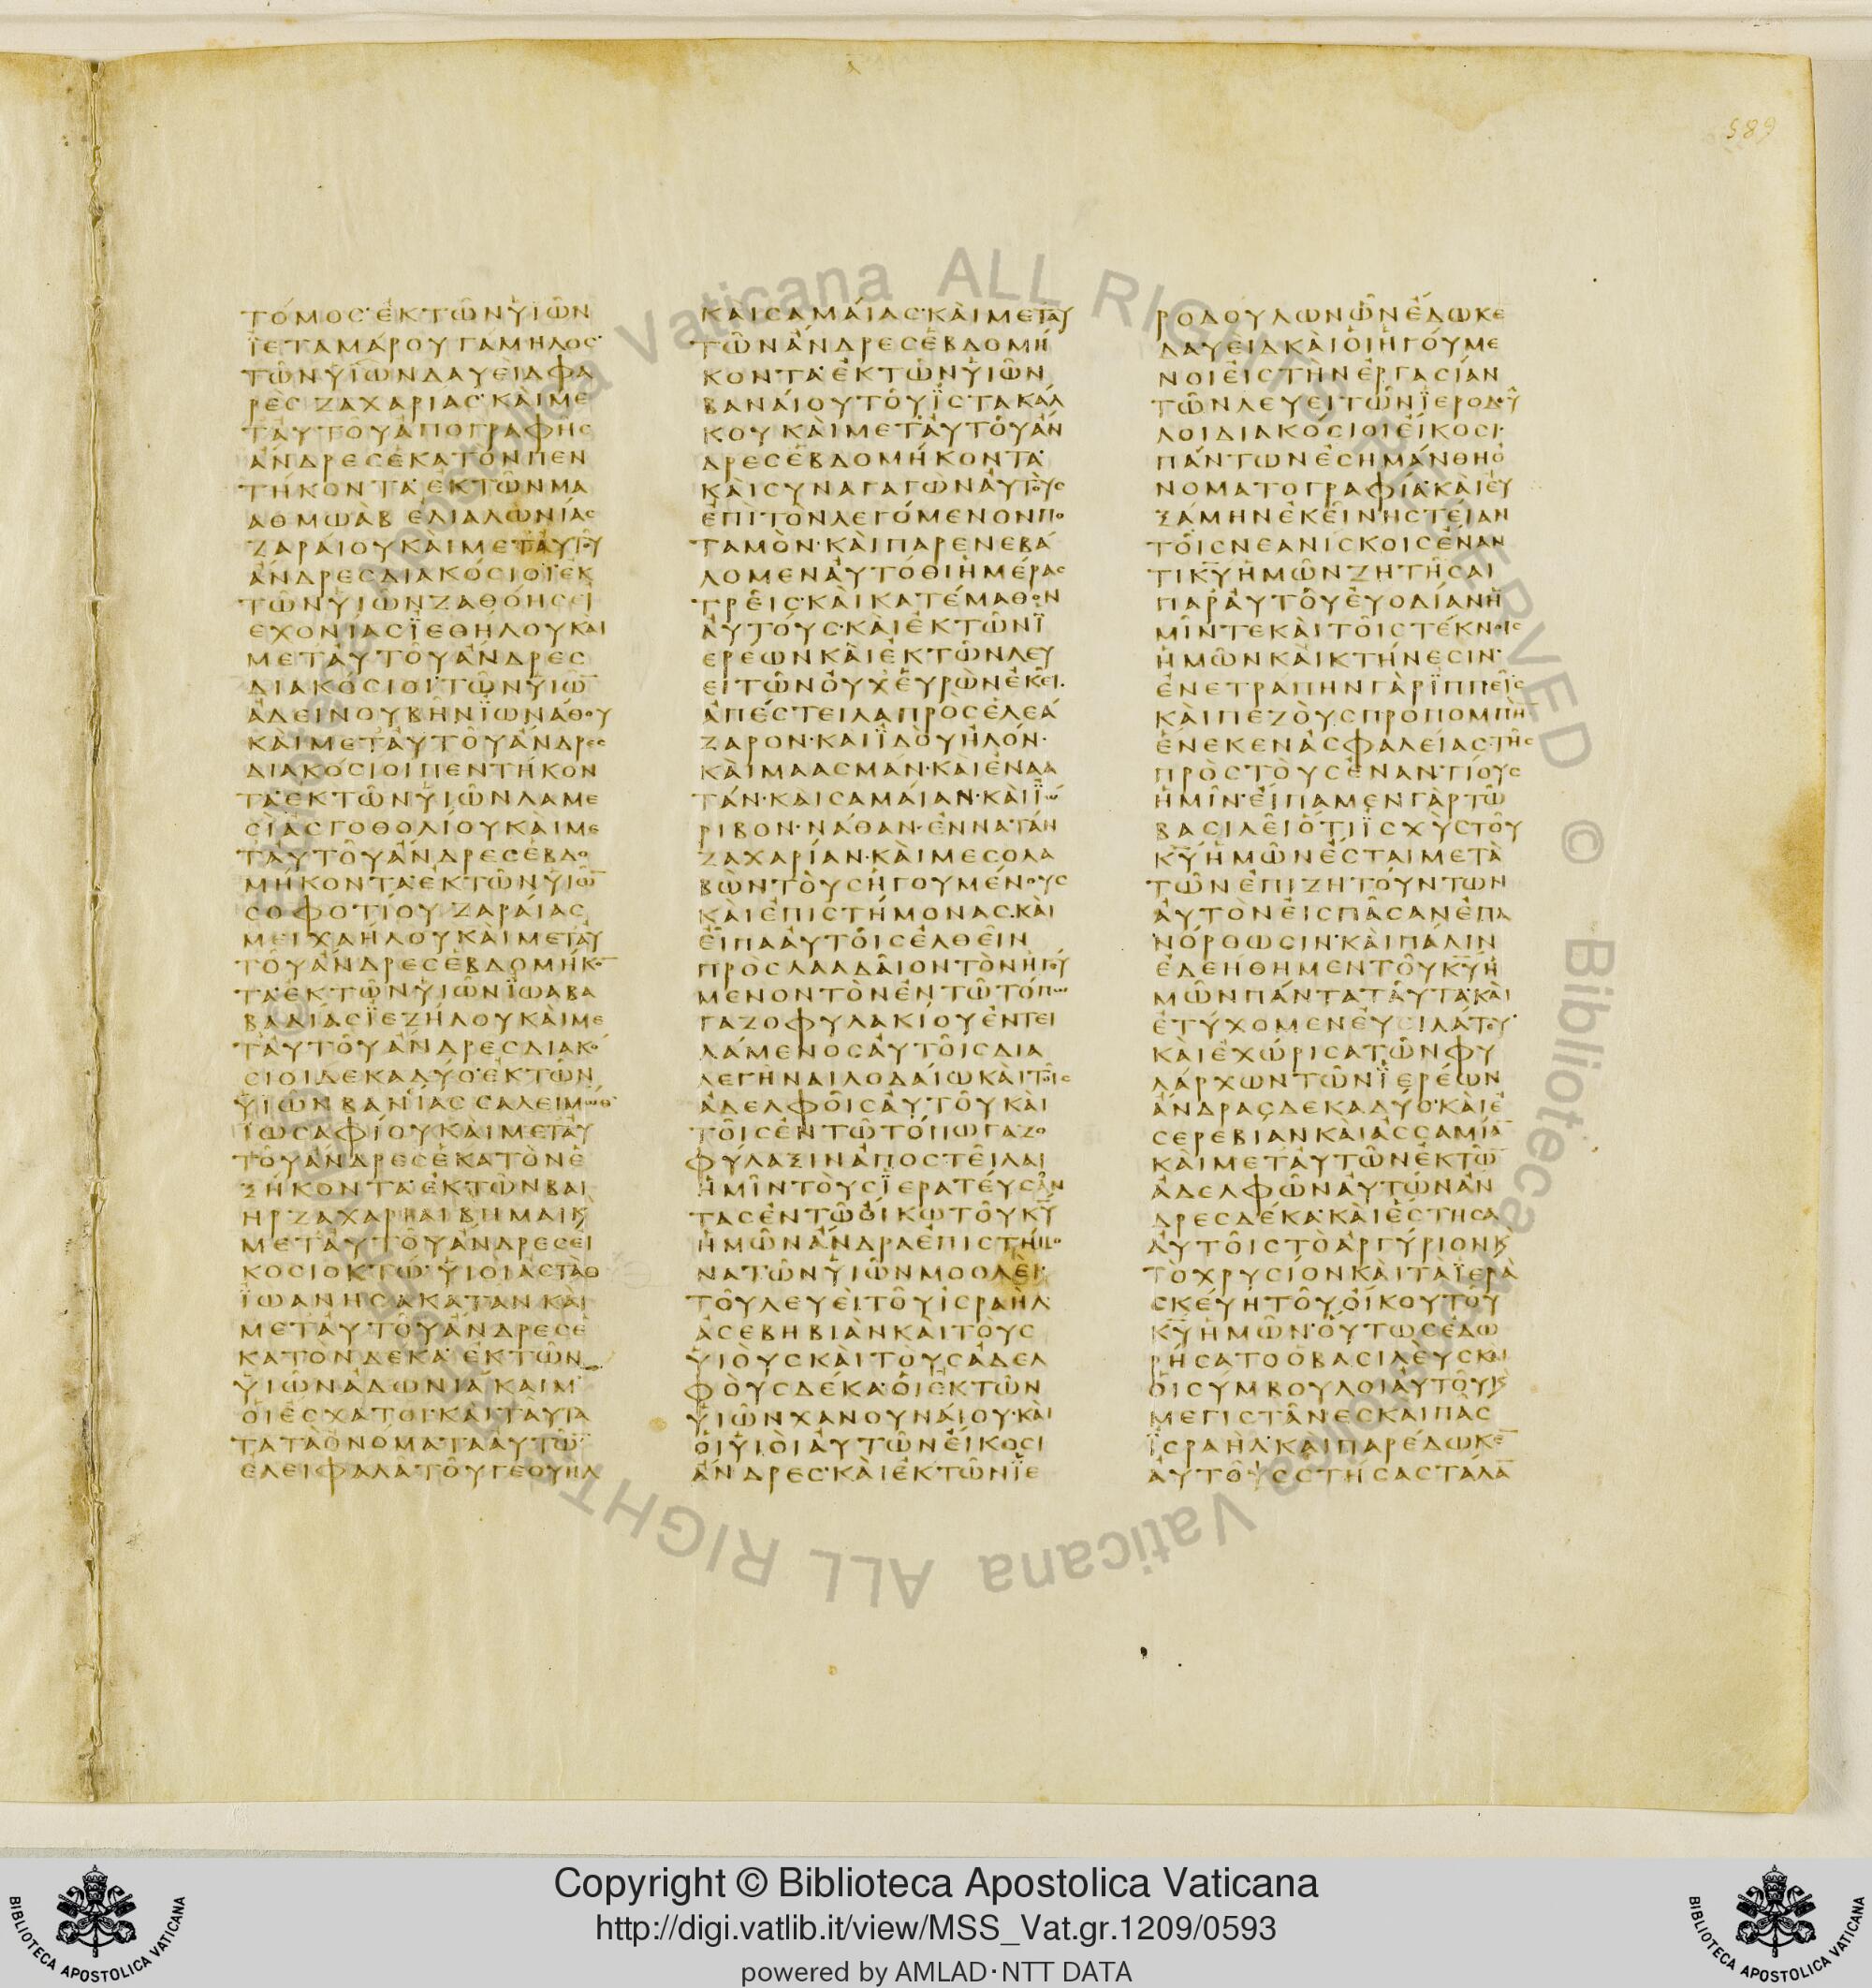 589
ΤΟΜΟΣ ΕΚ ΤΩΝ ΥΙΩΝ
ΙΕΤΑΜΑΡΟΥ ΓΑΜΗΛΟΣ
ΤΩΝ ΥΙΩΝ ΔΑΥΕΙΔ ΦΑ
ΡΕΣ ΖΑΧΑΡΙΑΣ ΚΑΙ ΜΕ
Τ ΑΥΤΟΥ ΑΠΟ ΓΡΑΦΗΣ
ΑΝΔΡΕΣ ΕΚΑΤΟΝ ΠΕΝ
ΤΗΚΟΝΤΑ ΕΚ ΤΩΝ ΜΑ
ΑΘΜΩΑΒ ΕΛΙΑΛΩΝΙΑΣ
ΖΑΡΑΙΟΥ ΚΑΙ ΜΕΤ ΑΥΤΟΥ
ΑΝΔΡΕΣ ΔΙΑΚΟΣΙΟΙ ΕΚ
ΤΩΝ ΥΙΩΝ ΖΑΘΟΗΣ ΕΙ
ΕΧΟΝΙΑΣ ΙΕΘΗΛΟΥ ΚΑΙ
ΜΕΤ ΑΥΤΟΥ ΑΝΔΡΕΣ
ΔΙΑΚΟΣΙΟΙ ΤΩΝ ΥΙΩ̅
ΑΔΕΙΝΟΥ ΒΗΝ ΙΩΝΑΘΟΥ
ΚΑΙ ΜΕΤ ΑΥΤΟΥ ΑΝΔΡΕΣ
ΔΙΑΚΟΣΙΟΙ ΠΕΝΤΗΚΟΝ
ΤΑ ΕΚ ΤΩΝ ΥΙΩΝ ΛΑΜΕ
ΣΙΑΣ ΓΟΘΟΛΙΟΥ ΚΑΙ ΜΕ
Τ ΑΥΤΟΥ ΑΝΔΡΕΣ ΕΒΔΟ
ΜΗΚΟΝΤΑ ΕΚ ΤΩΝ ΥΙΩ̅
ΣΟΦΟΤΙΟΥ ΖΑΡΑΙΑΣ
ΜΕΙΧΑΗΛΟΥ ΚΑΙ ΜΕΤ ΑΥ
ΤΟΥ ΑΝΔΡΕΣ ΕΒΔΟΜΗΚΟ̅
ΤΑ ΕΚ ΤΩΝ ΥΙΩΝ ΙΩΑΒ Α
ΒΑΔΙΑΣ ΙΕΖΗΛΟΥ ΚΑΙ ΜΕ
Τ ΑΥΤΟΥ ΑΝΔΡΕΣ ΔΙΑΚΟ
ΣΙΟΙ ΔΕΚΑ ΔΥΟ ΕΚ ΤΩΝ
ΥΙΩΝ ΒΑΝΙΑΣ ΣΑΛΕΙΜΩΘ
ΙΩΣΑΦΙΟΥ ΚΑΙ ΜΕΤ ΑΥ
ΤΟΥ ΑΝΔΡΕΣ ΕΚΑΤΟΝ Ε
ΞΗΚΟΝΤΑ ΕΚ ΤΩΝ ΒΑΙ
ΗΡ ΖΑΧΑΡΙΑΙ ΒΗΜΑΙ Κ
ΜΕΤ ΑΥΤΟΥ ΑΝΔΡΕΣ ΕΙ
ΚΟΣΙ ΟΚΤΩ ΥΙΟΙ ΑΣΤΑΘ
ΙΩΑΝΗΣ ΑΚΑΤΑΝ ΚΑΙ
ΜΕΤ ΑΥΤΟΥ ΑΝΔΡΕΣ Ε
ΚΑΤΟΝ ΔΕΚΑ ΕΚ ΤΩΝ
ΥΙΩΝ ΑΔΩΝΙΑ ΚΑΙΜ
ΟΙ ΕΣΧΑΤΟΙ ΚΑΙ ΤΑΥΤΑ
ΤΑ ΤΑ ΟΝΟΜΑΤΑ ΑΥΤΩ̅
ΕΛΕΙΦΑΛΑ ΤΟΥ ΓΕΟΥΗΛ
ΚΑΙ ΣΑΜΑΙΑΣ ΚΑΙ ΜΕΤ ΑΥ
ΤΩΝ ΑΝΔΡΕΣ ΕΒΔΟΜΗ
ΚΟΝΤΑ ΕΚ ΤΩΝ ΥΙΩΝ
ΒΑΝΑΙΟΥ ΤΟΥ ΙΣΤΑΚΑΛ
ΚΟΥ ΚΑΙ ΜΕΤ ΑΥΤΟΥ ΑΝ
ΔΡΕΣ ΕΒΔΟΜΗΚΟΝΤΑ
ΚΑΙ ΣΥΝΑΓΑΓΩΝ ΑΥΤΟΥΣ
ΕΠΙ ΤΟΝ ΛΕΓΟΜΕΝΟΝ ΠΟ
ΤΑΜΟΝ ΚΑΙ ΠΑΡΕΝΕΒΑ
ΛΟΜΕΝ ΑΥΤΟΘΙ ΗΜΕΡΑΣ
ΤΡΕΙΣ ΚΑΙ ΚΑΤΕΜΑΘΟΝ
ΑΥΤΟΥΣ ΚΑΙ ΕΚ ΤΩΝ Ι
ΕΡΕΩΝ ΚΑΙ ΕΚ ΤΩΝ ΛΕΥ
ΕΙΤΩΝ ΟΥΧ ΕΥΡΩΝ ΕΚΕΙ
ΑΠΕΣΤΕΙΛΑ ΠΡΟΣ ΕΛΕΑ
ΖΑΡΟΝ ΚΑΙ ΙΔΟΥΗΛΟΝ
ΚΑΙ ΜΑΑΣΜΑΝ ΚΑΙ ΕΝΑΑ
ΤΑΝ ΚΑΙ ΣΑΜΑΙΑΝ ΚΑΙ ΙΩ
ΡΙΒΟΝ ΝΑΘΑΝ ΕΝΝΑΤΑΝ
ΖΑΧΑΡΙΑΝ ΚΑΙ ΜΕΣΟΛΑ
ΒΩΝ ΤΟΥΣ ΗΓΟΥΜΕΝΟΥΣ
ΚΑΙ ΕΠΙΣΤΗΜΟΝΑΣ ΚΑΙ
ΕΙΠΑ ΑΥΤΟΙΣ ΕΛΘΕΙΝ
ΠΡΟΣ ΛΑΑΔΑΙΟΝ ΤΟΝ ΗΓΟΥ
ΜΕΝΟΝ ΤΟΝ ΕΝ ΤΩ ΤΟΠΩ
ΓΑΖΟΦΥΛΑΚΙΟΥ ΕΝΤΕΙ
ΛΑΜΕΝΟΣ ΑΥΤΟΙΣ ΔΙΑ
ΛΕΓΗΝΑΙ ΛΟΔΑΙΩ ΚΑΙ ΤΟΙΣ
ΑΔΕΛΦΟΙΣ ΑΥΤΟΥ ΚΑΙ
ΤΟΙΣ ΕΝ ΤΩ ΤΟΠΩ ΓΑΖΟ
ΦΥΛΑΞΙΝ ΑΠΟΣΤΕΙΛΑΙ
ΗΜΙΝ ΤΟΥΣ ΙΕΡΑΤΕΥΣΑΝ
ΤΑΣ ΕΝ ΤΩ ΟΙΚΩ ΤΟΥ Κ̅Υ̅
ΗΜΩΝ ΑΝΔΡΑ ΕΠΙΣΤΗΜΟ
ΝΑ ΤΩΝ ΥΙΩΝ ΜΟΟΛΕΙ
ΤΟΥ ΛΕΥΕΙ ΤΟΥ ΙΣΡΑΗΛ
ΑΣΕΒΗΒΙΑΝ ΚΑΙ ΤΟΥΣ
ΥΙΟΥΣ ΚΑΙ ΤΟΥΣ ΑΔΕΛ
ΦΟΥΣ ΔΕΚΑ ΟΙ ΕΚ ΤΩΝ
ΥΙΩΝ ΧΑΝΟΥΝΑΙΟΥ ΚΑΙ
ΟΙ ΥΙΟΙ ΑΥΤΩΝ ΕΙΚΟΣΙ
ΑΝΔΡΕΣ ΚΑΙ ΕΚ ΤΩΝ ΙΕ
ΡΟΔΟΥΛΩΝ ΩΝ ΕΔΩΚΕ
ΔΑΥΕΙΔ ΚΑΙ ΟΙ ΗΓΟΥΜΕ
ΝΟΙ ΕΙΣ ΤΗΝ ΕΡΓΑΣΙΑΝ
ΤΩΝ ΛΕΥΕΙΤΩΝ ΙΕΡΟΔΟΥ
ΛΟΙ ΔΙΑΚΟΣΙΟΙ ΕΙΚΟΣΙ
ΠΑΝΤΩΝ ΕΣΗΜΑΝΘΗ Ο
ΝΟΜΑΤΟΓΡΑΦΙΑ ΚΑΙ ΕΥ
ΞΑΜΗΝ ΕΚΕΙ ΝΗΣΤΕΙΑΝ
ΤΟΙΣ ΝΕΑΝΙΣΚΟΙΣ ΕΝΑΝ
ΤΙ Κ̅Υ̅ ΗΜΩΝ ΖΗΤΗΣΑΙ
ΠΑΡ ΑΥΤΟΥ ΕΥΟΔΙΑΝ Η
ΜΙΝ ΤΕ ΚΑΙ ΤΟΙΣ ΤΕΚΝΟΙΣ
ΗΜΩΝ ΚΑΙ ΚΤΗΝΕΣΙΝ
ΕΝΕΤΡΑΠΗΝ ΓΑΡ ΙΠΠΕΙΣ
ΚΑΙ ΠΕΖΟΥΣ ΠΡΟΠΟΜΠΗ̅
ΕΝΕΚΕΝ ΑΣΦΑΛΕΙΑΣ ΤΗΣ
ΠΡΟΣ ΤΟΥΣ ΕΝΑΝΤΙΟΥΣ
ΗΜΙΝ ΕΙΠΑΜΕΝ ΓΑΡ ΤΩ
ΒΑΣΙΛΕΙ ΟΤΙ ΙΣΧΥΣ ΤΟΥ
Κ̅Υ̅ ΗΜΩΝ ΕΣΤΑΙ ΜΕΤΑ
ΤΩΝ ΕΠΙΖΗΤΟΥΝΤΩΝ
ΑΥΤΟΝ ΕΙΣ ΠΑΣΑΝ ΕΠΑ
ΝΟΡΘΩΣΙΝ ΚΑΙ ΠΑΛΙΝ
ΕΔΕΗΘΗΜΕΝ ΤΟΥ Κ̅Υ̅ Η
ΜΩΝ ΠΑΝΤΑ ΤΑΥΤΑ ΚΑΙ
ΕΤΥΧΟΜΕΝ ΕΥΙΛΑΤΟΥ
ΚΑΙ ΕΧΩΡΙΣΑ ΤΩΝ ΦΥ
ΛΑΡΧΩΝ ΤΩΝ ΙΕΡΕΩΝ
ΑΝΔΡΑΣ ΔΕΚΑ ΔΥΟ ΚΑΙ Ε
ΣΕΡΕΒΙΑΝ ΚΑΙ ΑΣΣΑΜΙΑ̅
ΚΑΙ ΜΕΤ ΑΥΤΩΝ ΕΚ ΤΩ̅
ΑΔΕΛΦΩΝ ΑΥΤΩΝ ΑΝ
ΔΡΕΣ ΔΕΚΑ ΚΑΙ ΕΣΤΗΣΑ
ΑΥΤΟΙΣ ΤΟ ΑΡΓΥΡΙΟΝ Κ
ΤΟ ΧΡΥΣΙΟΝ ΚΑΙ ΤΑ ΙΕΡΑ
ΣΚΕΥΗ ΤΟΥ ΟΙΚΟΥ ΤΟΥ
Κ̅Υ̅ ΗΜΩΝ ΟΥΤΩΣ ΕΔΩ
ΡΗΣΑΤΟ Ο ΒΑΣΙΛΕΥΣ ΚΑΙ
ΟΙ ΣΥΜΒΟΥΛΟΙ ΑΥΤΟΥ Κ
ΜΕΓΙΣΤΑΝΕΣ ΚΑΙ ΠΑΣ
ΙΣΡΑΗΛ ΚΑΙ ΠΑΡΕΔΩΚΕ̅
ΑΥΤΟΥΣ ΣΤΗΣΑΣ ΤΑΛΑ̅
Vaticana ALL RIGHTS RESERVED © Biblioteca Apostolica Vaticana ALL RIGHTS
Copyright © Biblioteca Apostolica Vaticana
http://digi.vatlib.it/view/MSS_Vat.gr.1209/0593
powered by AMLAD·NTT DATA
BIBLIOTECA APOSTOLICA VATICANA
BIBLIOTECA APOSTOLICA VATICANA